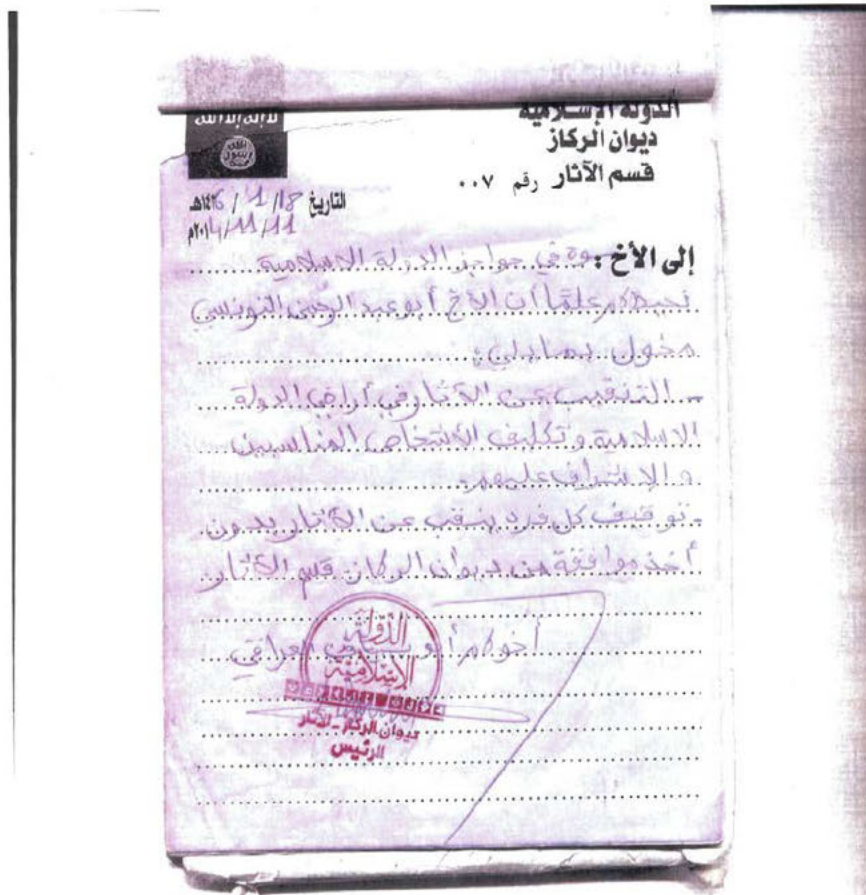 الدولة الإسلامية
ديوان الركاز
قسم الآثار رقم ٠٠٧
لا إله إلا الله
الله
رسول
محمد
التاريخ 18/ 1 / ١٤٣6هـ
11/11/ ٢٠١4م
إلى الأخ : في حواجز الدولة الاسلامية
نحيطكم علمًا أن الأخ أبو عبد الرحمن التونسي
مخول بمايلي:
- التنقيب عن الآثار في أراضي الدولة
الاسلامية و تكليف الأشخاص المناسبين
و الإشراف عليهم.
- توقيف كل فرد ينقب عن الآثار بدون
أخذ موافقة من ديوان الركاز قسم الآثار
أخوكم أبو العراقي
الدولة
الإسلامية
ديوان الركاز - الآثار
الرئيس